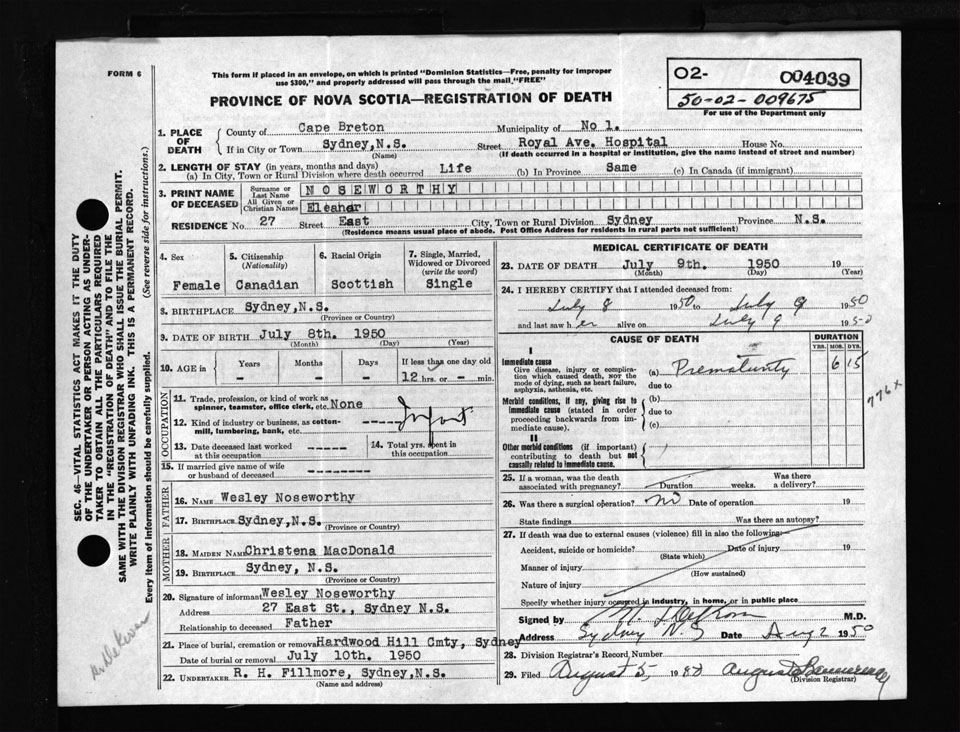 FORM 6
This form if placed in an envelope, on which is printed "Dominion Statistics—Free, penalty for improper
use $300," and properly addressed will pass through the mail, "FREE"
PROVINCE OF NOVA SCOTIA—REGISTRATION OF DEATH
02- 004039
50-02-009675
For use of the Department only
1. PLACE OF DEATH
County of Cape Breton Municipality of No 1.
If in City or Town Sydney, N.S. Street Royal Ave. Hospital House No.
(Name) (If death occurred in a hospital or institution, give the name instead of street and number)
2. LENGTH OF STAY (in years, months and days)
(a) In City, Town or Rural Division where death occurred Life (b) In Province Same (c) In Canada (if immigrant)
3. PRINT NAME OF DECEASED
Surname or Last Name NOSEWORTHY
All Given or Christian Names Eleanor
RESIDENCE No. 27 Street East City, Town or Rural Division Sydney Province N.S.
(Residence means usual place of abode. Post Office Address for residents in rural parts not sufficient)
4. Sex
Female
5. Citizenship (Nationality)
Canadian
6. Racial Origin
Scottish
7. Single, Married, Widowed or Divorced (write the word)
Single
8. BIRTHPLACE Sydney, N.S.
(Province or Country)
9. DATE OF BIRTH July 8th. 1950
(Month) (Day) (Year)
10. AGE in Years Months Days If less than one day old
- - - 12 hrs. or - min.
OCCUPATION
11. Trade, profession, or kind of work as
spinner, teamster, office clerk, etc. None
12. Kind of industry or business, as cotton-
mill, lumbering, bank, etc. -----
Infant
13. Date deceased last worked
at this occupation
14. Total yrs. spent in
this occupation
15. If married give name of wife
or husband of deceased
FATHER
16. NAME Wesley Noseworthy
17. BIRTHPLACE Sydney, N.S.
(Province or Country)
MOTHER
18. MAIDEN NAME Christena MacDonald
19. BIRTHPLACE Sydney, N.S.
(Province or Country)
20. Signature of informant Wesley Noseworthy
Address 27 East St., Sydney N.S.
Relationship to deceased Father
21. Place of burial, cremation or removal Hardwood Hill Cmty, Sydney
Date of burial or removal July 10th. 1950
22. UNDERTAKER R. H. Fillmore, Sydney, N.S.
(Name and address)
MEDICAL CERTIFICATE OF DEATH
23. DATE OF DEATH July 9th. 1950 19
(Month) (Day) (Year)
24. I HEREBY CERTIFY that I attended deceased from:
July 8 1950 to July 9 1950
and last saw her alive on July 9 1950
CAUSE OF DEATH
DURATION
YRS. MOS. DYS.
I
Immediate cause
Give disease, injury or complica-
tion which caused death, NOT the
mode of dying, such as heart failure,
asphyxia, asthenia, etc.
(a) Prematurity 6 15
due to
Morbid conditions, if any, giving rise to
immediate cause (stated in order
proceeding backwards from im-
mediate cause).
(b)
due to
(c)
776X
II
Other morbid conditions (if important)
contributing to death but not
causally related to immediate cause.
25. If a woman, was the death
associated with pregnancy? Duration weeks. Was there
a delivery?
26. Was there a surgical operation? no Date of operation 19
State findings Was there an autopsy?
27. If death was due to external causes (violence) fill in also the following:
Accident, suicide or homicide? Date of injury 19
(State which)
Manner of injury
(How sustained)
Nature of injury
Specify whether injury occurred in industry, in home, or in public place
Signed by M.D.
Address Sydney N.S Date Aug 2 1950
28. Division Registrar's Record Number
29. Filed August 5, 19
(Division Registrar)
SEC. 46—VITAL STATISTICS ACT MAKES IT THE DUTY
OF THE UNDERTAKER OR PERSON ACTING AS UNDER-
TAKER TO OBTAIN ALL THE PARTICULARS REQUIRED
IN THE "REGISTRATION OF DEATH" AND TO FILE THE
SAME WITH THE DIVISION REGISTRAR WHO SHALL ISSUE THE BURIAL PERMIT.
WRITE PLAINLY WITH UNFADING INK. THIS IS A PERMANENT RECORD.
Every item of information should be carefully supplied. (See reverse side for instructions.)